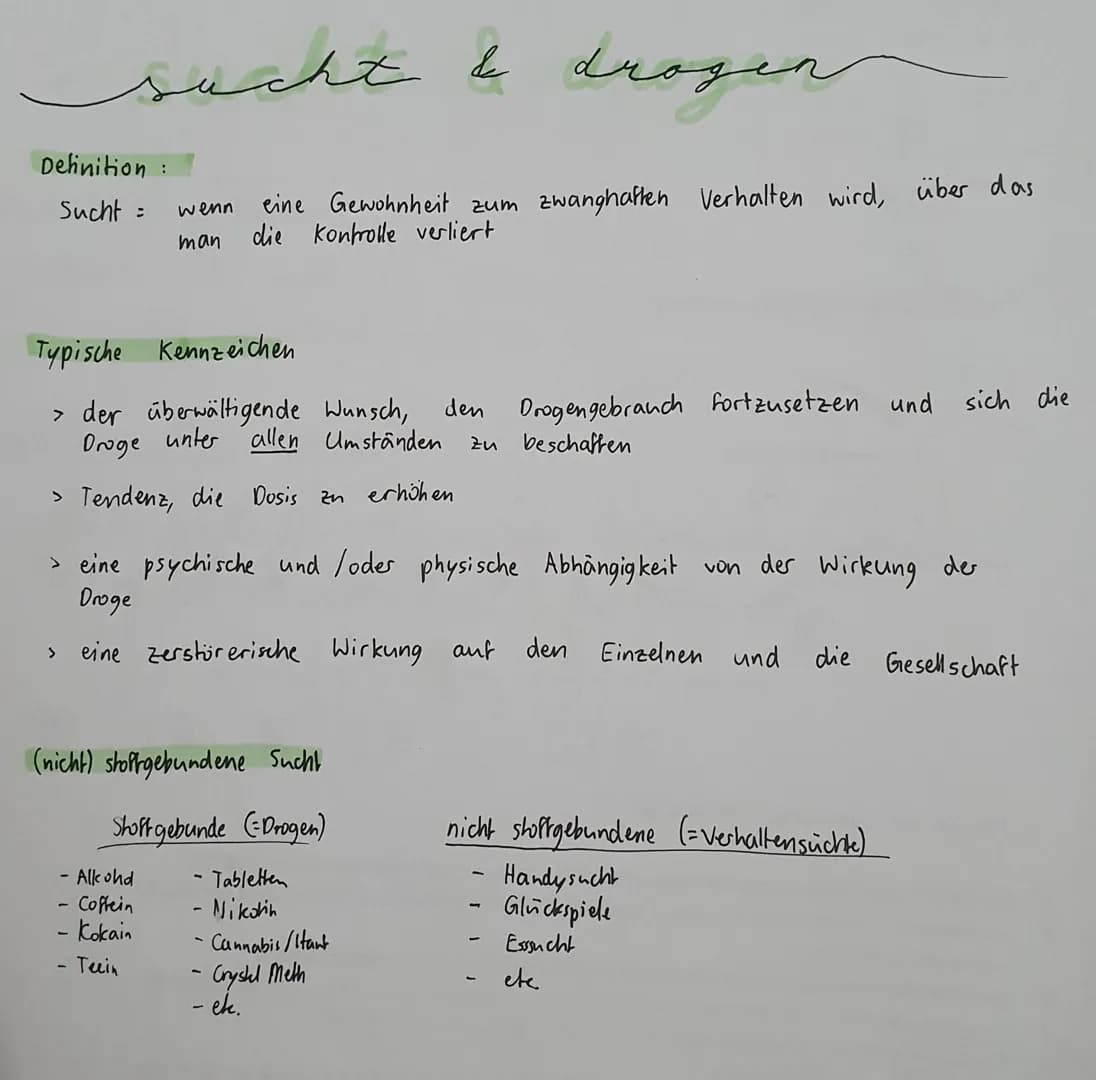 sucht & drogen
Definition :
Sucht = wenn eine Gewohnheit zum zwanghaften Verhalten wird, über das
man die Kontrolle verliert
Typische Kennzeichen
> der überwältigende Wunsch, den Drogengebrauch fortzusetzen und sich die
Droge unter allen Umständen zu beschaffen
> Tendenz, die Dosis zu erhöhen
> eine psychische und /oder physische Abhängigkeit von der Wirkung der
Droge
> eine zerstörerische Wirkung auf den Einzelnen und die Gesellschaft
(nicht) stoffgebundene Sucht
Stoffgebunde (=Drogen)
- Alkohol
- Coffein
- Kokain
- Teein
- Tabletten
- Nikotin
- Cannabis/Hanf
- Crystel Meth
- etc.
nicht stoffgebundene (=Verhaltensüchte)
- Handysucht
- Glückspiele
- Esssucht
- etc